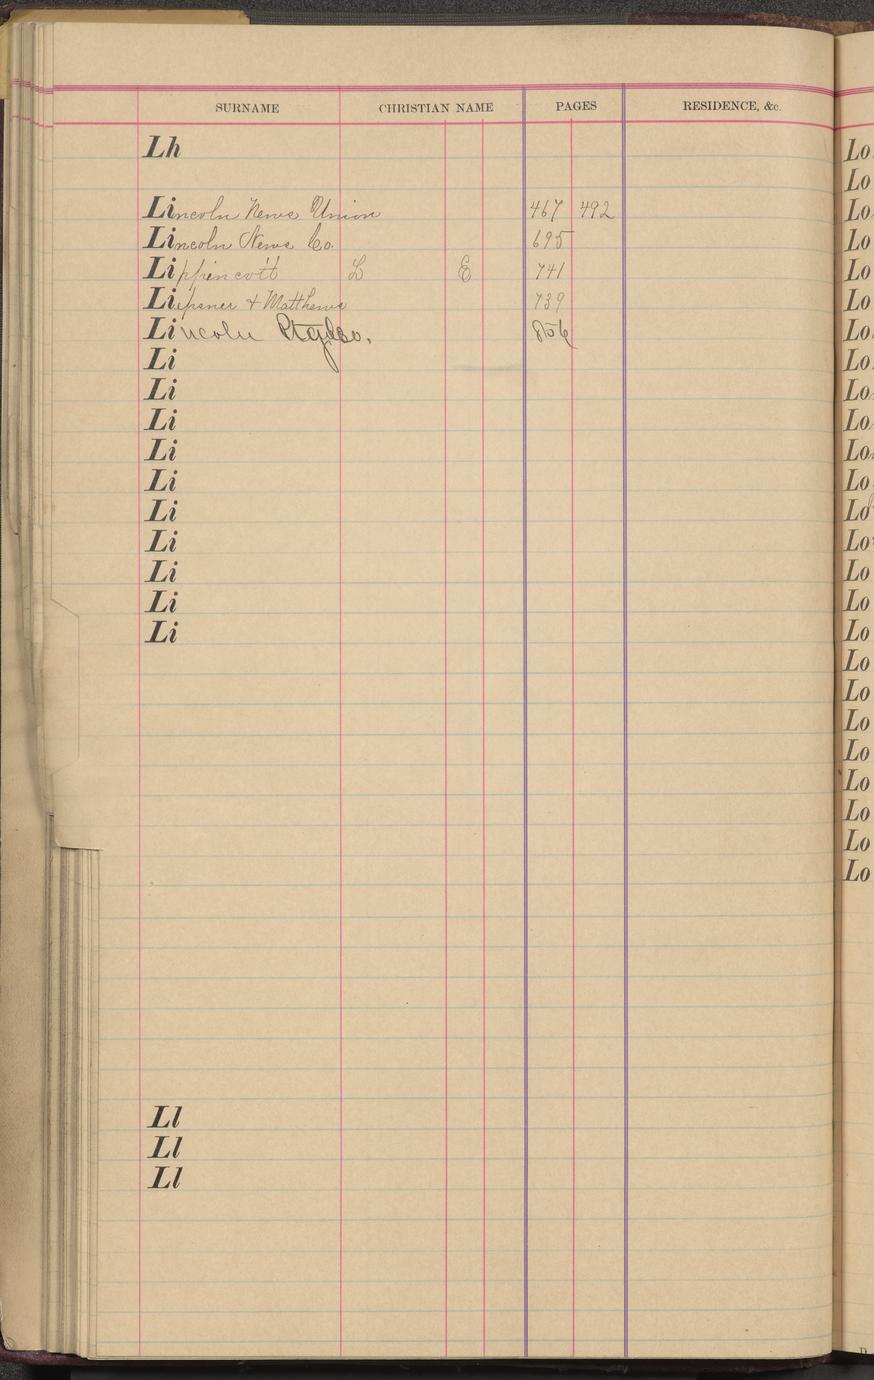 SURNAME CHRISTIAN NAME PAGES RESIDENCE, &c.
Lh
Lincoln News Union 467 492
Lincoln News Co. 695
Lippincott L E 741
& Matthews 739
Lincoln Co. 856
Li
Li
Li
Li
Li
Li
Li
Li
Li
Li
Ll
Ll
Ll
Lo
Lo
Lo
Lo
Lo
Lo
Lo
Lo
Lo
Lo
Lo
Lo
Lo
Lo
Lo
Lo
Lo
Lo
Lo
Lo
Lo
Lo
Lo
Lo
Lo